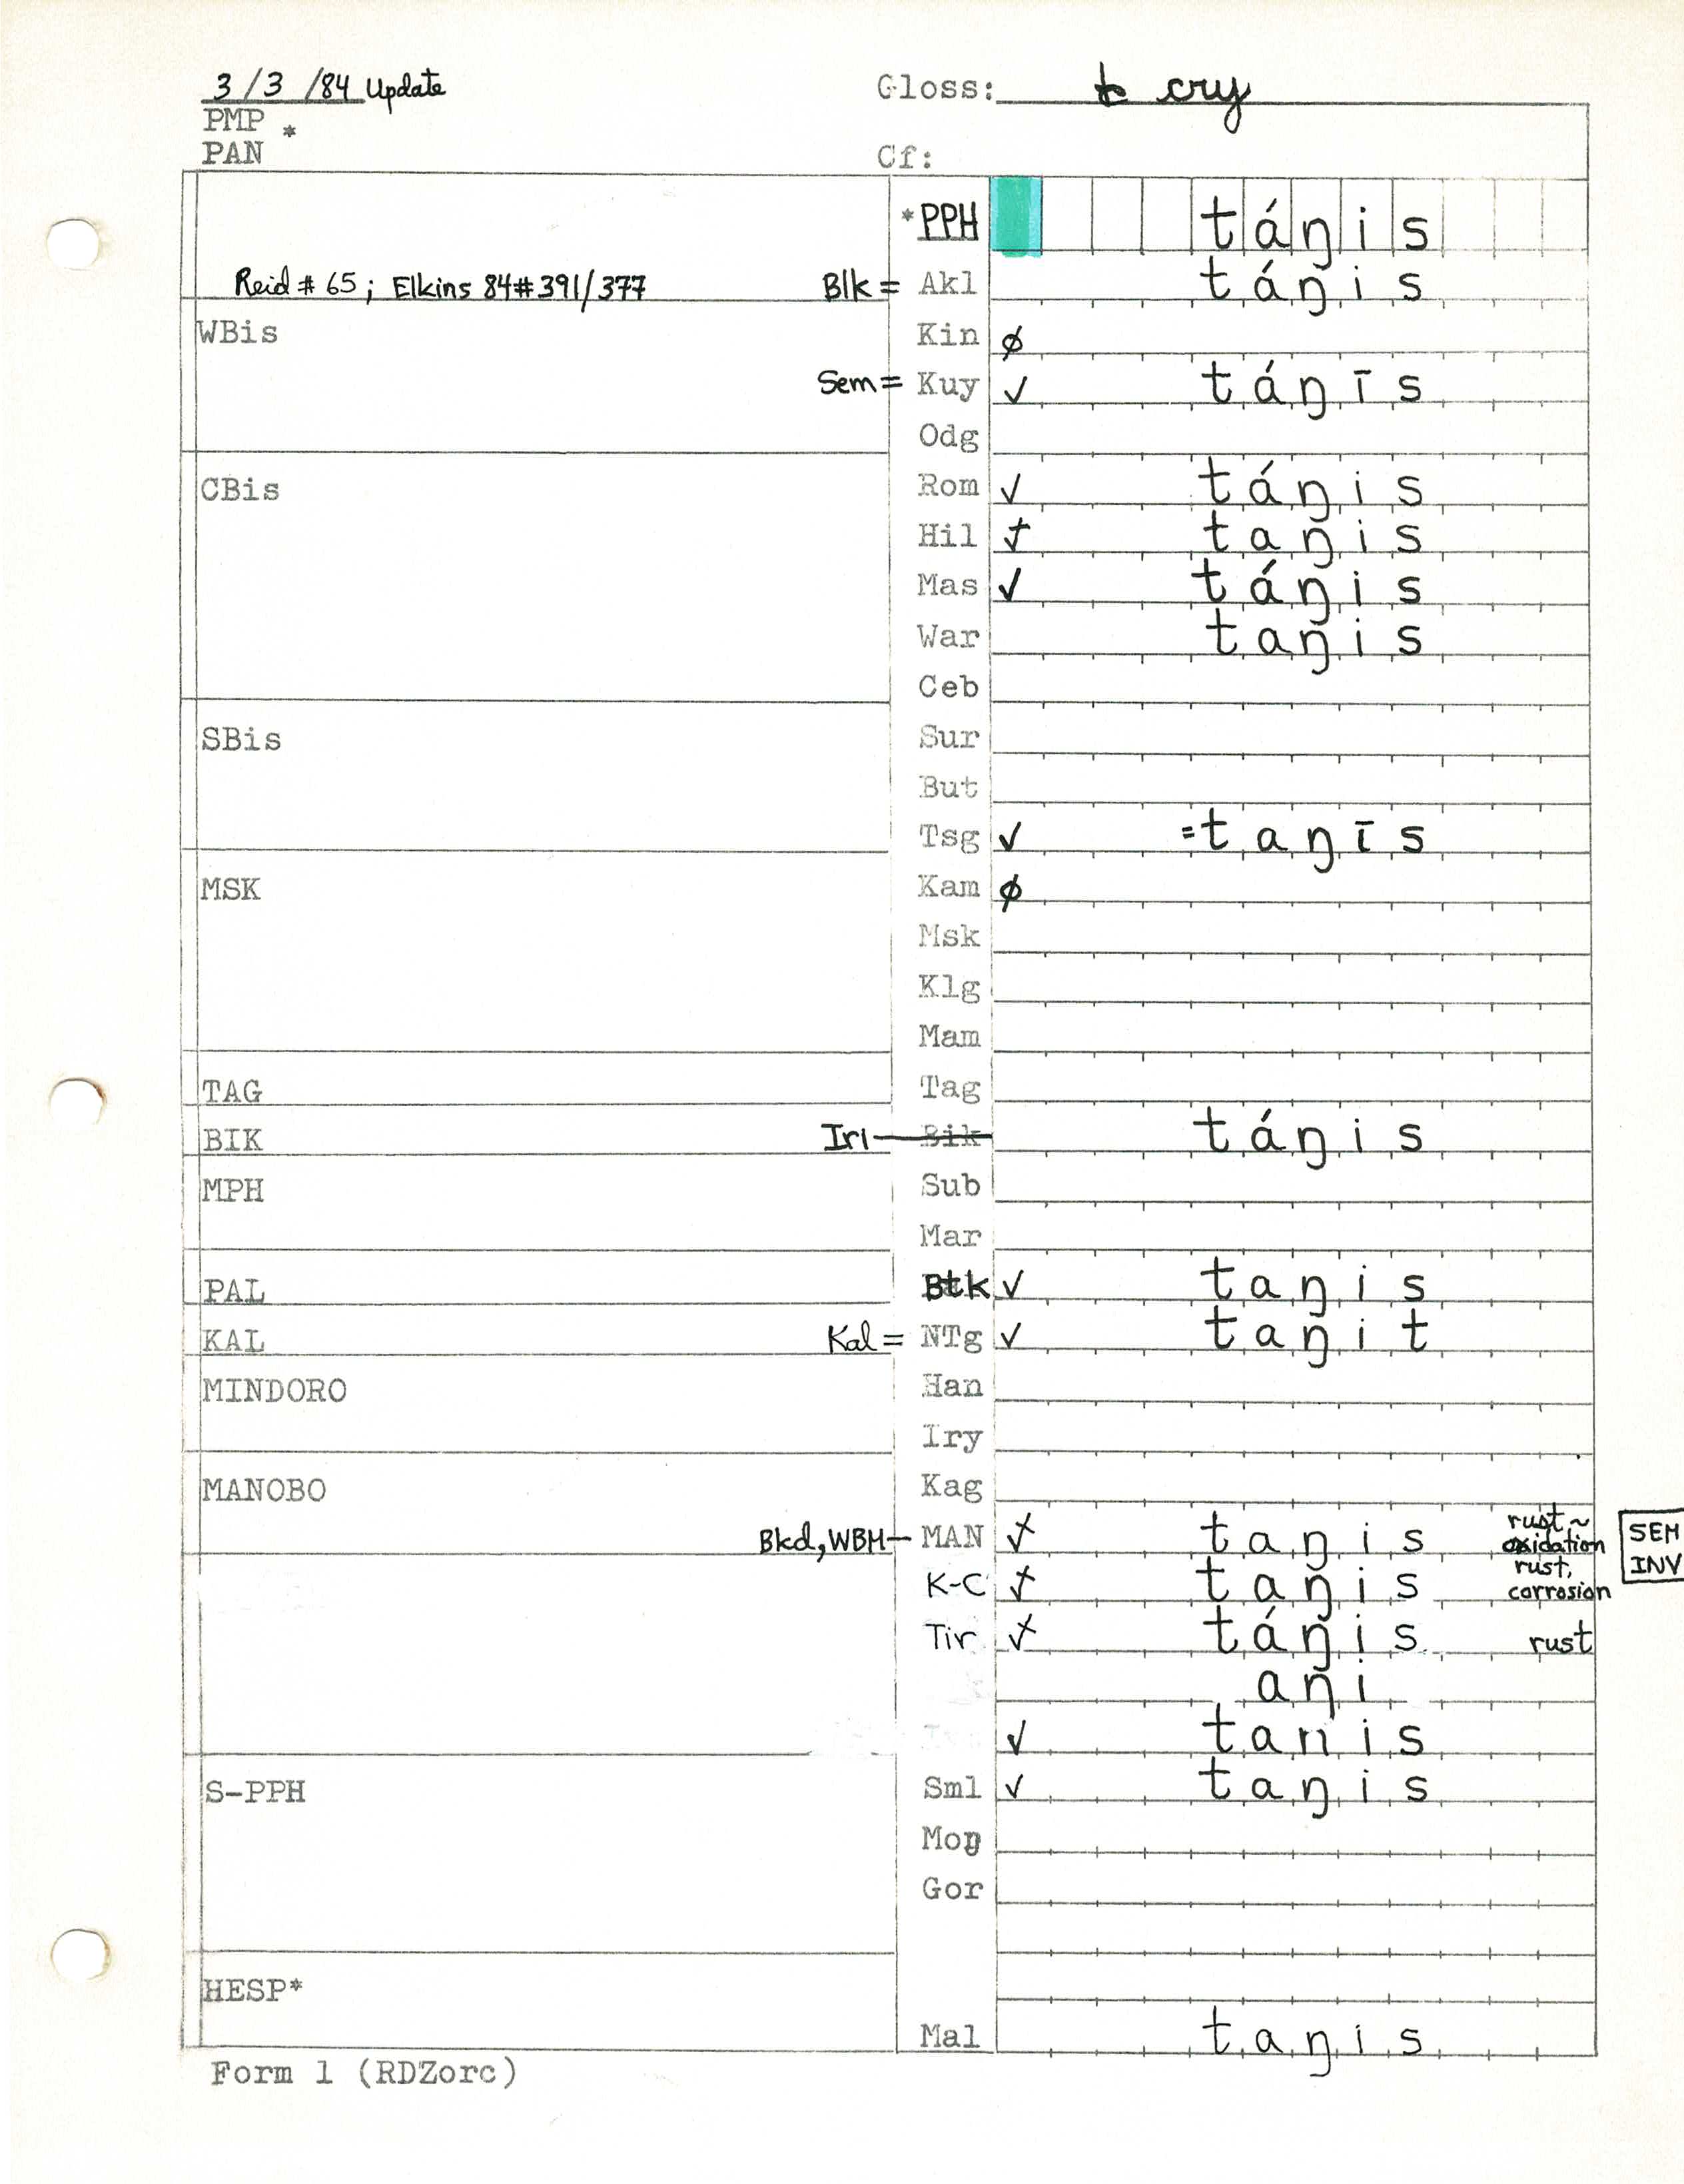 3/3/84 Update Gloss: to cry
PMP *
PAN Cf:
*PPH táŋis
Reid # 65; Elkins 84#391/377 Blk = Akl táŋis
WBis Kin ∅
Sem = Kuy ✓ táŋīs
Odg
CBis Rom ✓ táŋis
Hil ✓ taŋis
Mas ✓ táŋis
War taŋis
Ceb
SBis Sur
But
Tsg ✓ =taŋīs
MSK Kam ∅
Msk
Klg
Mam
TAG Tag
BIK Iri — Bik táŋis
MPH Sub
Mar
PAL Btk ✓ taŋis
KAL Kal = NTg ✓ taŋit
MINDORO Han
Iry
MANOBO Kag
Bkd, WBM — MAN ✓ taŋis rust ~ oxidation SEM INV
K-C ✓ taŋis rust, corrosion
Tir ✓ táŋis rust
aŋi
✓ tanis
S-PPH Sml ✓ taŋis
Moŋ
Gor
HESP*
Mal taŋis
Form 1 (RDZorc)